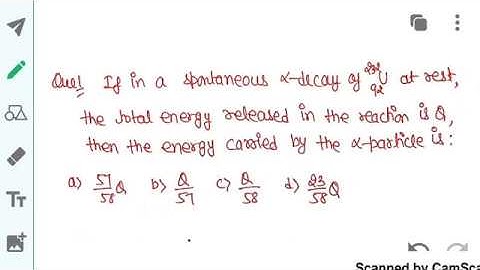 Que! If in a spontaneous α-decay of ²³²₉₂U at rest,
the total energy released in the reaction is Q,
then the energy carried by the α-particle is:
a) 57/58 Q b) Q/57 c) Q/58 d) 23/58 Q
Tт
Scanned by CamSca